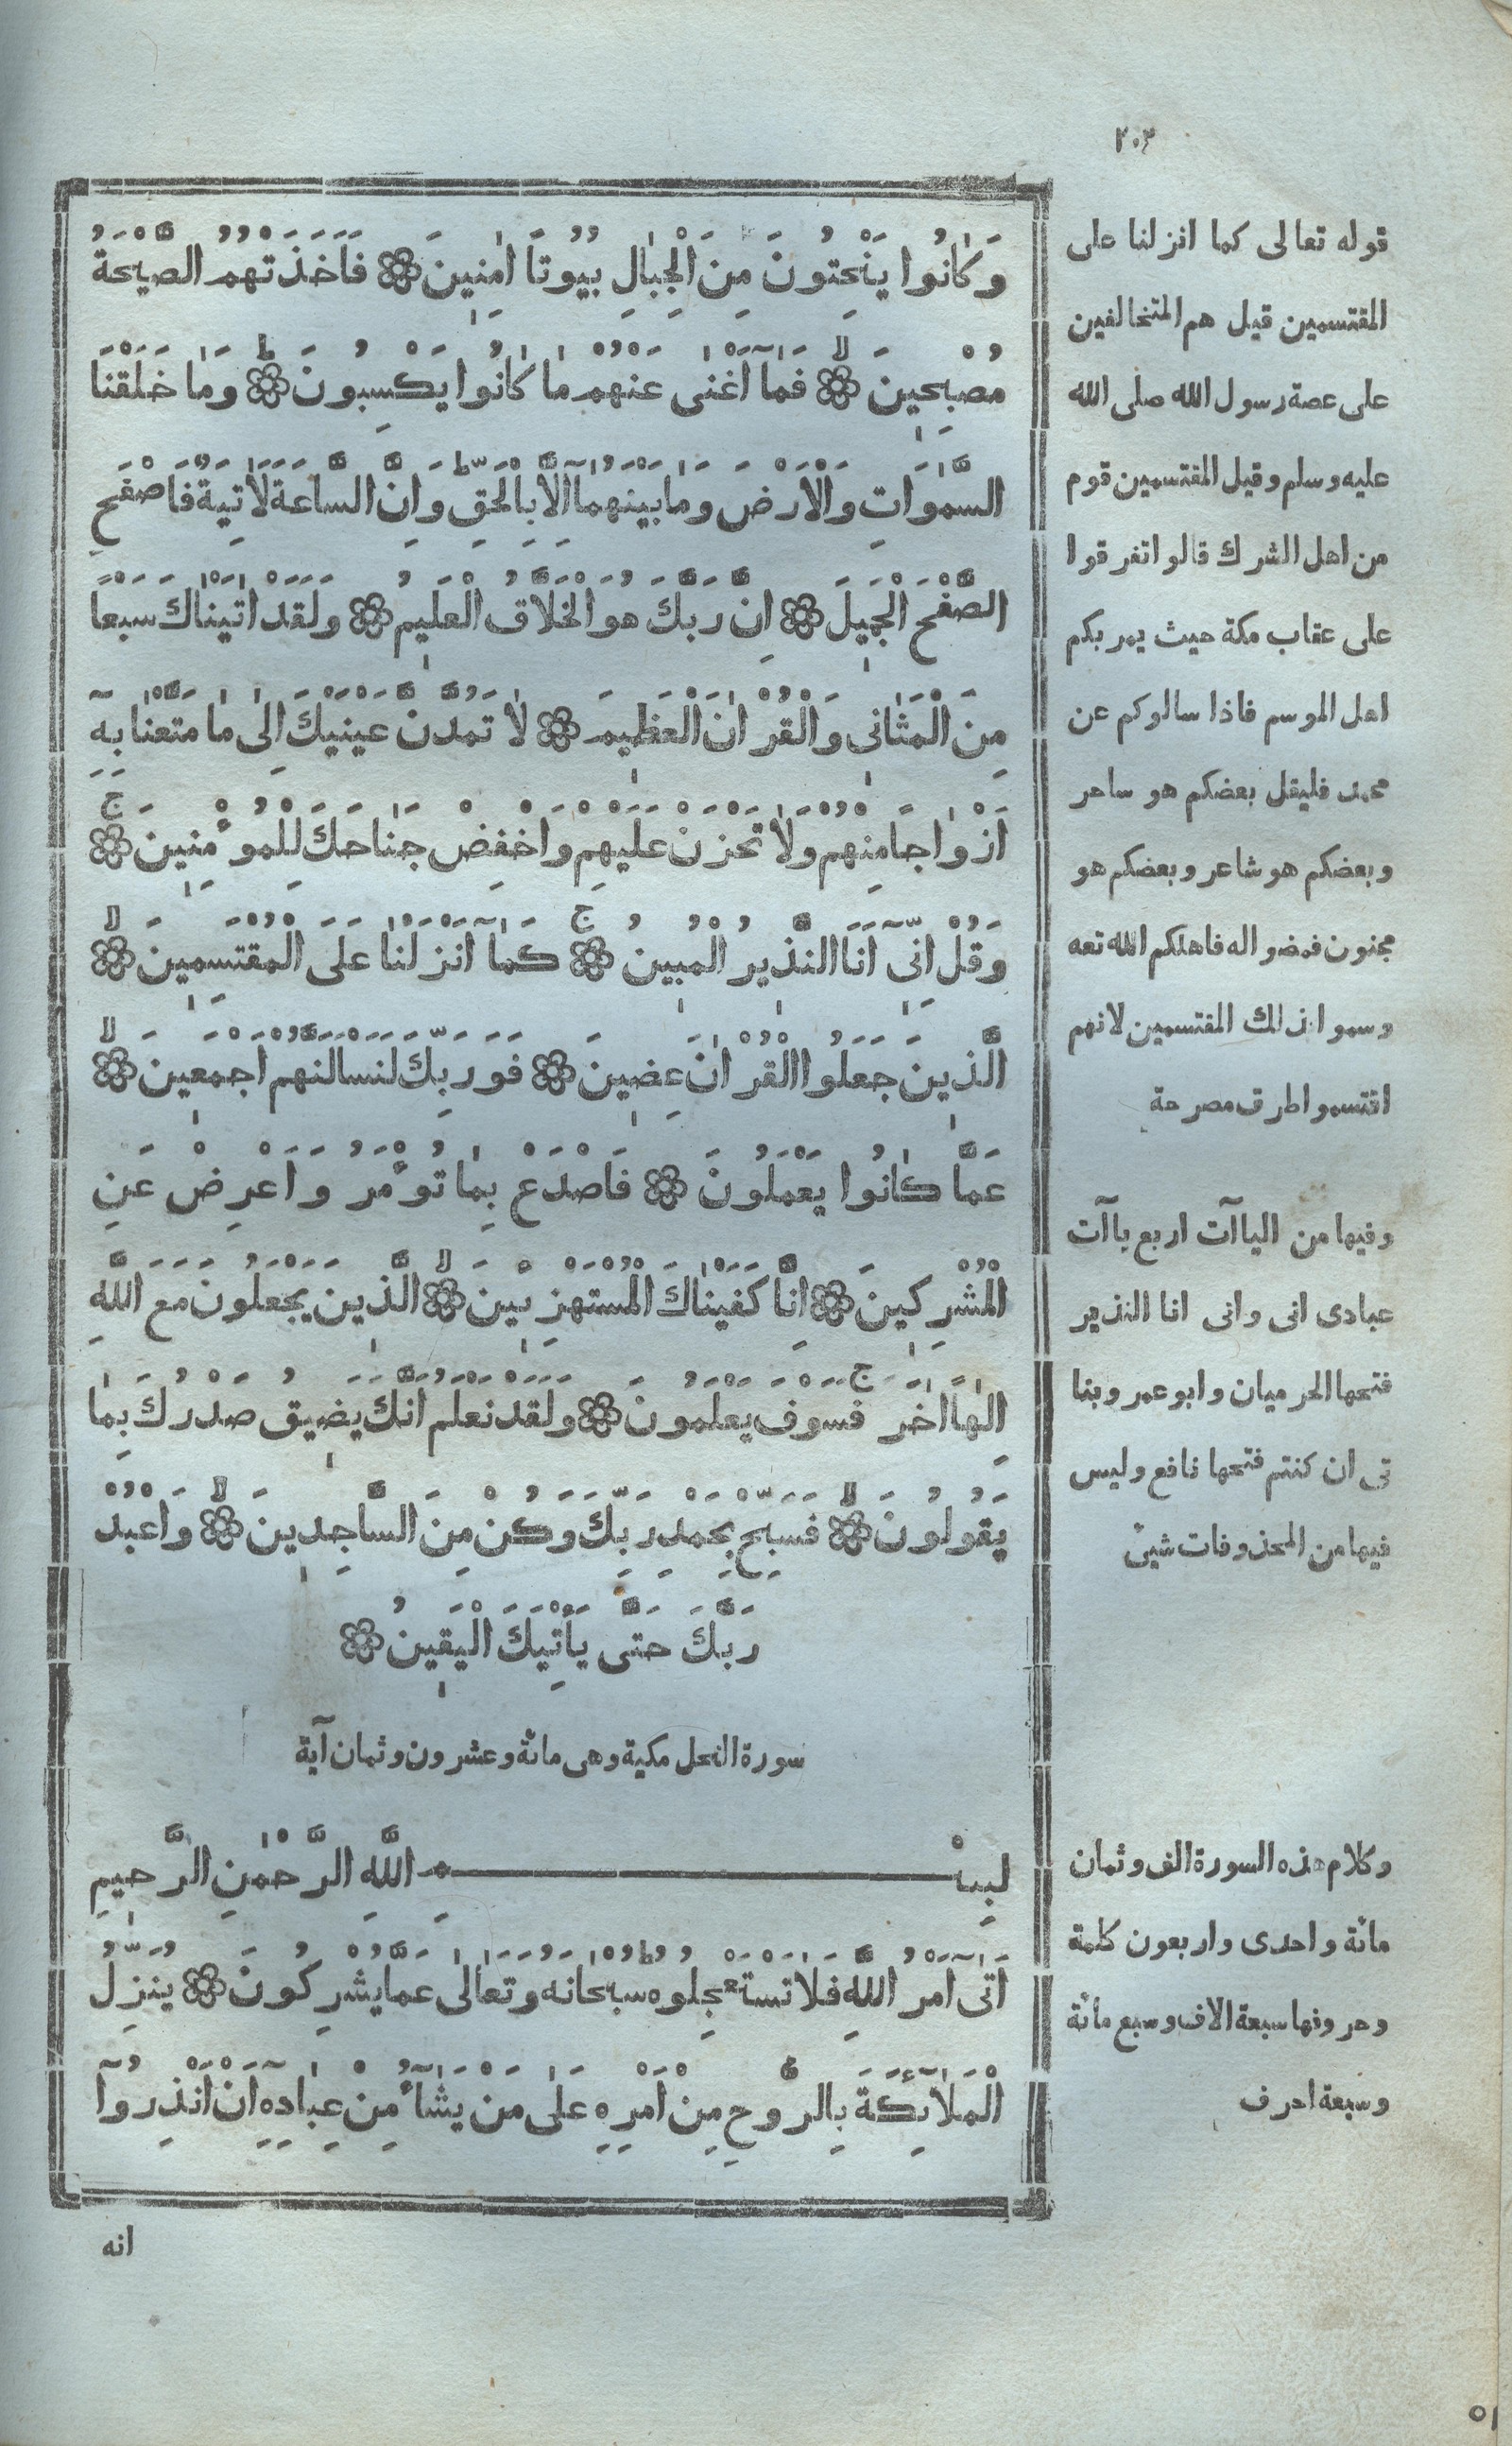 ٢٠٢
وَكَانُوا يَنْحِتُونَ مِنَ الْجِبَالِ بُيُوتًا اٰمِنِينَ ۞ فَاَخَذَتْهُمُ الصَّيْحَةُ
مُصْبِحِينَ ۞ فَمَآ اَغْنٰى عَنْهُمْ مَا كَانُوا يَكْسِبُونَ ۞ وَمَا خَلَقْنَا
السَّمٰوَاتِ وَالْاَرْضَ وَمَا بَيْنَهُمَآ اِلَّا بِالْحَقِّ وَاِنَّ السَّاعَةَ لَاٰتِيَةٌ فَاصْفَحِ
الصَّفْحَ الْجَمِيلَ ۞ اِنَّ رَبَّكَ هُوَ الْخَلَّاقُ الْعَلِيمُ ۞ وَلَقَدْ اٰتَيْنَاكَ سَبْعًا
مِنَ الْمَثَانِى وَالْقُرْاٰنَ الْعَظِيمَ ۞ لَا تَمُدَّنَّ عَيْنَيْكَ اِلٰى مَا مَتَّعْنَا بِهِٓ
اَزْوَاجًا مِنْهُمْ وَلَا تَحْزَنْ عَلَيْهِمْ وَاخْفِضْ جَنَاحَكَ لِلْمُؤْمِنِينَ ۞
وَقُلْ اِنِّىٓ اَنَا النَّذِيرُ الْمُبِينُ ۞ كَمَآ اَنْزَلْنَا عَلَى الْمُقْتَسِمِينَ ۞
الَّذِينَ جَعَلُوا الْقُرْاٰنَ عِضِينَ ۞ فَوَرَبِّكَ لَنَسْاَلَنَّهُمْ اَجْمَعِينَ ۞
عَمَّا كَانُوا يَعْمَلُونَ ۞ فَاصْدَعْ بِمَا تُؤْمَرُ وَاَعْرِضْ عَنِ
الْمُشْرِكِينَ ۞ اِنَّا كَفَيْنَاكَ الْمُسْتَهْزِئِينَ ۞ الَّذِينَ يَجْعَلُونَ مَعَ اللّٰهِ
اِلٰهًا اٰخَرَ فَسَوْفَ يَعْلَمُونَ ۞ وَلَقَدْ نَعْلَمُ اَنَّكَ يَضِيقُ صَدْرُكَ بِمَا
يَقُولُونَ ۞ فَسَبِّحْ بِحَمْدِ رَبِّكَ وَكُنْ مِنَ السَّاجِدِينَ ۞ وَاعْبُدْ
رَبَّكَ حَتّٰى يَأْتِيَكَ الْيَقِينُ ۞
سورة النحل مكية وهى مائة وعشرون وثمان آية
بِسْمِ اللّٰهِ الرَّحْمٰنِ الرَّحِيمِ
اَتٰىٓ اَمْرُ اللّٰهِ فَلَا تَسْتَعْجِلُوهُ سُبْحَانَهُ وَتَعَالٰى عَمَّا يُشْرِكُونَ ۞ يُنَزِّلُ
الْمَلَآئِكَةَ بِالرُّوحِ مِنْ اَمْرِهِ عَلٰى مَنْ يَشَآءُ مِنْ عِبَادِهِٓ اَنْ اَنْذِرُوٓا
انه
قوله تعالى كما انزلنا على
المقتسمين قيل هم المتخالفين
على عصة رسول الله صلى الله
عليه وسلم وقيل المقتسمين قوم
من اهل الشرك قالوا تفرقوا
على عقاب مكة حيث يمر بكم
اهل الموسم فاذا سالوكم عن
محمد فليقل بعضكم هو ساحر
وبعضكم هو شاعر وبعضكم هو
مجنون فمضوا له فاهلكم الله تعه
وسموا ذلك المقتسمين لانهم
اقتسموا طرق مصرحة
وفيها من الياآت اربع ياآت
عبادى انى وانى انا النذير
فتحها الحرميان وابو عمرو بنا
تى ان كنتم فتحها نافع وليس
فيها من المحذوفات شئ
وكلام هذه السورة الف وثمان
مائة واحدى واربعون كلمة
وحروفها سبعة الاف وسبع مائة
وسبعة احرف
٥١